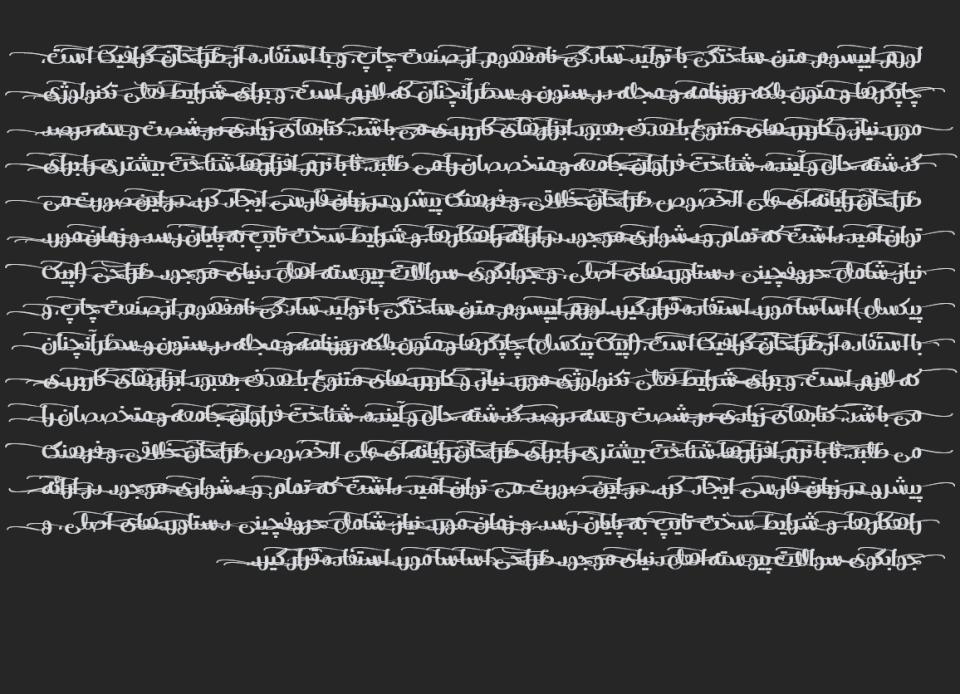 لورم ایپسوم متن ساختگی با تولید سادگی نامفهوم از صنعت چاپ، و با استفاده از طراحان گرافیک است،
چاپگرها و متون بلکه روزنامه و مجله در ستون و سطرآنچنان که لازم است، و برای شرایط فعلی تکنولوژی
مورد نیاز، و کاربردهای متنوع با هدف بهبود ابزارهای کاربردی می باشد، کتابهای زیادی در شصت و سه درصد
گذشته حال و آینده، شناخت فراوان جامعه و متخصصان را می طلبد، تا با نرم افزارها شناخت بیشتری را برای
طراحان رایانه ای علی الخصوص طراحان خلاقی، و فرهنگ پیشرو در زبان فارسی ایجاد کرد، در این صورت می
توان امید داشت که تمام و دشواری موجود در ارائه راهکارها، و شرایط سخت تایپ به پایان رسد و زمان مورد
نیاز شامل حروفچینی دستاوردهای اصلی، و جوابگوی سوالات پیوسته اهل دنیای موجود طراحی (اپتیک
پیکسل) اساسا مورد استفاده قرار گیرد. لورم ایپسوم متن ساختگی با تولید سادگی نامفهوم از صنعت چاپ، و
با استفاده از طراحان گرافیک است، (اپتیک پیکسل) چاپگرها و متون بلکه روزنامه و مجله در ستون و سطرآنچنان
که لازم است، و برای شرایط فعلی تکنولوژی مورد نیاز، و کاربردهای متنوع با هدف بهبود ابزارهای کاربردی
می باشد، کتابهای زیادی در شصت و سه درصد گذشته حال و آینده، شناخت فراوان جامعه و متخصصان را
می طلبد، تا با نرم افزارها شناخت بیشتری را برای طراحان رایانه ای علی الخصوص طراحان خلاقی، و فرهنگ
پیشرو در زبان فارسی ایجاد کرد، در این صورت می توان امید داشت که تمام و دشواری موجود در ارائه
راهکارها، و شرایط سخت تایپ به پایان رسد و زمان مورد نیاز شامل حروفچینی دستاوردهای اصلی، و
جوابگوی سوالات پیوسته اهل دنیای موجود طراحی اساسا مورد استفاده قرار گیرد.